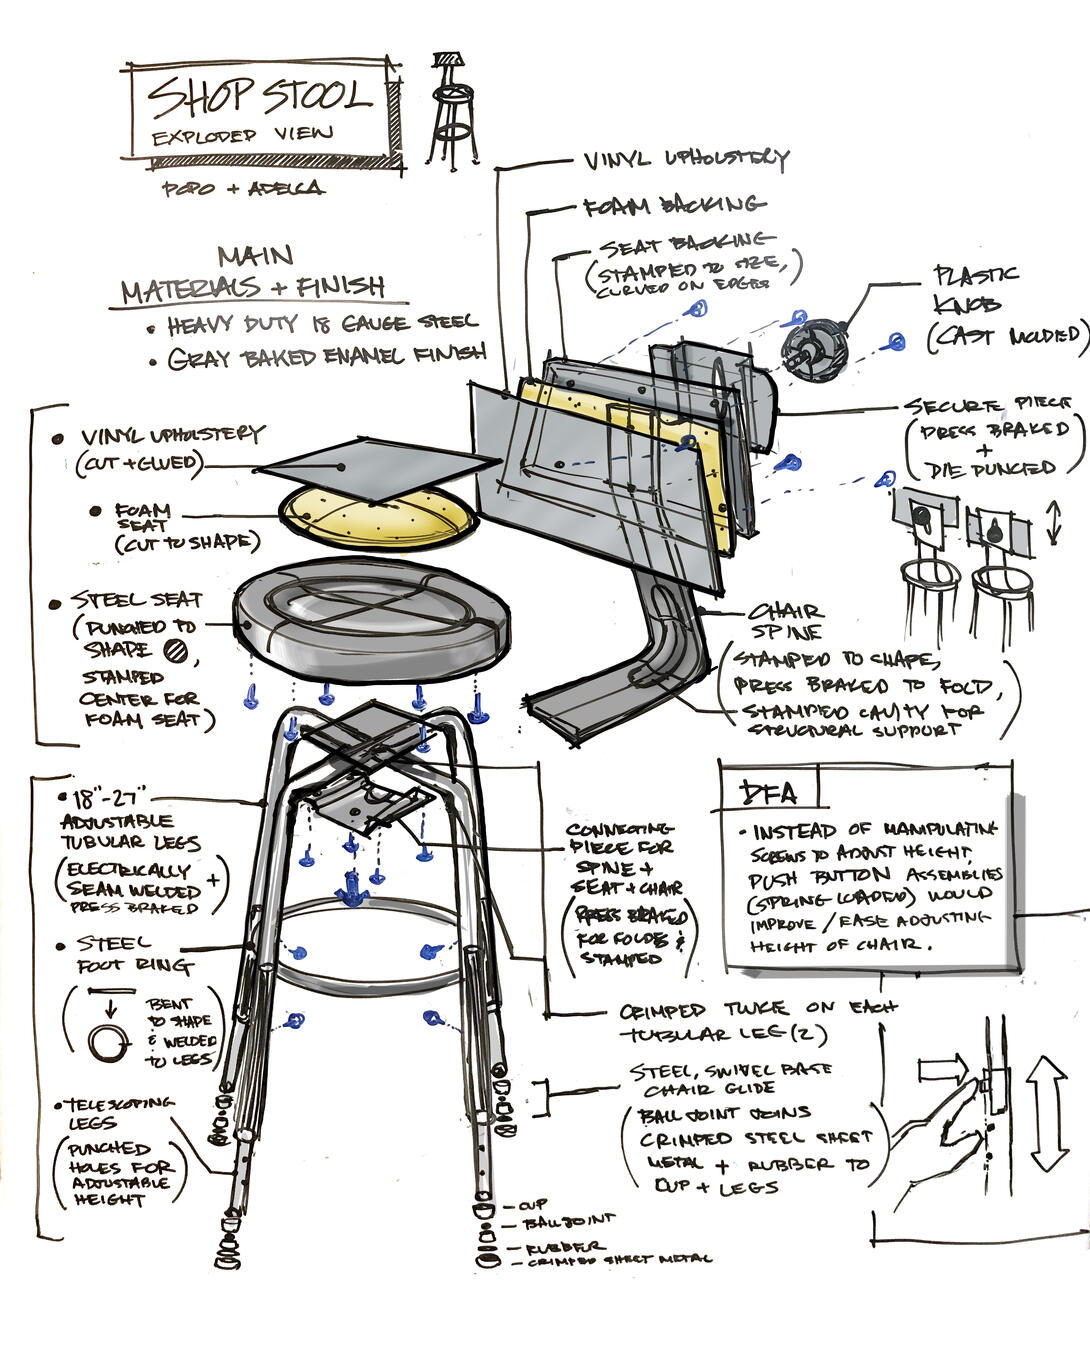 SHOP STOOL
EXPLODED VIEW
POPO + ADELCA
MAIN
MATERIALS + FINISH
• HEAVY DUTY 18 GAUGE STEEL
• GRAY BAKED ENAMEL FINISH
VINYL UPHOLSTERY
FOAM BACKING
SEAT BACKING
(STAMPED TO SIZE,
CURVED ON EDGES)
PLASTIC
KNOB
(CAST MOLDED)
SECURE PIECE
(PRESS BRAKED
+
DIE PUNCHED)
• VINYL UPHOLSTERY
(CUT + GLUED)
• FOAM
SEAT
(CUT TO SHAPE)
• STEEL SEAT
(PUNCHED TO
SHAPE ,
STAMPED
CENTER FOR
FOAM SEAT)
CHAIR
SPINE
(STAMPED TO SHAPE,
PRESS BRAKED TO FOLD,
STAMPED CAVITY FOR
STRUCTURAL SUPPORT)
• 18"-27"
ADJUSTABLE
TUBULAR LEGS
(ELECTRICALLY
SEAM WELDED +
PRESS BRAKED)
• STEEL
FOOT RING
(BENT
TO SHAPE
& WELDED
TO LEGS)
• TELESCOPING
LEGS
(PUNCHED
HOLES FOR
ADJUSTABLE
HEIGHT)
CONNECTING
PIECE FOR
SPINE +
SEAT + CHAIR
(PRESS BRAKED
FOR FOLDS &
STAMPED)
DFA
• INSTEAD OF MANIPULATING
SCREWS TO ADJUST HEIGHT,
PUSH BUTTON ASSEMBLIES
(SPRING LOADED) WOULD
IMPROVE / EASE ADJUSTING
HEIGHT OF CHAIR.
CRIMPED TWICE ON EACH
TUBULAR LEG (2)
STEEL, SWIVEL BASE
CHAIR GLIDE
(BALL JOINT JOINS
CRIMPED STEEL SHEET
METAL + RUBBER TO
CUP + LEGS)
- CUP
- BALL JOINT
- RUBBER
- CRIMPED SHEET METAL